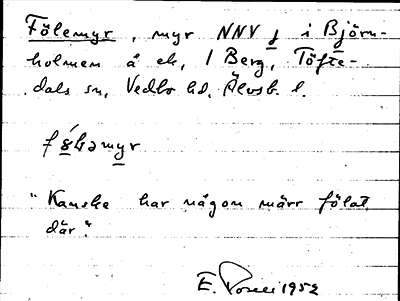 Fölemyr, myr NNV j i Björn-
holmen å ek. 1 Berg, Töfte-
dals sn, Vedbo hd. Älvsb. l.
"Kanske har någon märr fölat
där."
E. 1952